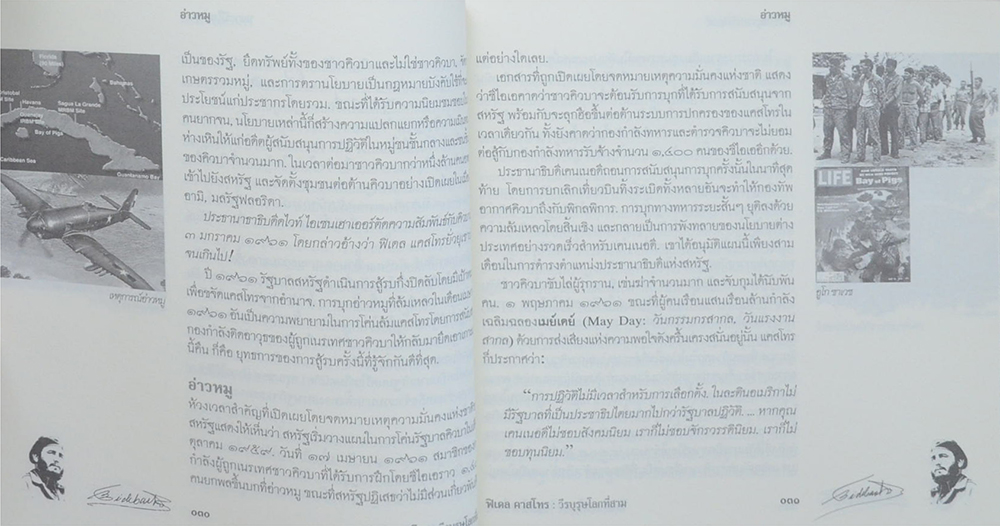 อ่าวหมู
เป็นของรัฐ, ยึดทรัพย์ทั้งของชาวคิวบาและไม่ใช่ชาวคิวบา,
เกษตรรวมหมู่, และการตรานโยบายเป็นกฎหมายบังคับใช้
ประโยชน์แก่ประชากรโดยรวม. ขณะที่ได้รับความนิยมชมชอบ
คนยากจน, นโยบายเหล่านี้ก็สร้างความแปลกแยกหรือความ
ห่างเหินให้แก่อดีตผู้สนับสนุนการปฏิวัติในหมู่ชนชั้นกลางและ
ของคิวบาจำนวนมาก. ในเวลาต่อมาชาวคิวบากว่าหนึ่งล้านคน
เข้าไปยังสหรัฐ และจัดตั้งชุมชนต่อต้านคิวบาอย่างเปิดเผยใน
อามี, มลรัฐฟลอริดา.
ประธานาธิบดีดไวท์ ไอเซนเฮาเออร์ตัดความสัมพันธ์กับคิวบา
๓ มกราคม ๑๙๖๑ โดยกล่าวอ้างว่า ฟิเดล แคสโทรยั่วยุ
จนเกินไป!
ปี ๑๙๖๑ รัฐบาลสหรัฐดำเนินการสู้รบกึ่งปิดลับโดยมี
เพื่อขจัดแคสโทรจากอำนาจ. การบุกอ่าวหมูที่ล้มเหลวในเดือน
๑๙๖๑ อันเป็นความพยายามในการโค่นล้มแคสโทรโดยการ
กองกำลังติดอาวุธของผู้ถูกเนรเทศชาวคิวบาให้กลับมายึดเอา
นี้คืน ก็คือ ยุทธการของการสู้รบครั้งนี้ที่รู้จักกันดีที่สุด.
อ่าวหมู
ห้วงเวลาสำคัญที่เปิดเผยโดยจดหมายเหตุความมั่นคงแห่งชาติ
สหรัฐแสดงให้เห็นว่า สหรัฐเริ่มวางแผนในการโค่นรัฐบาลคิวบา
ตุลาคม ๑๙๕๙. วันที่ ๑๗ เมษายน ๑๙๖๑ สมาชิกของ
กำลังผู้ถูกเนรเทศชาวคิวบาที่ได้รับการฝึกโดยซีไอเอราว
คนยกพลขึ้นบกที่อ่าวหมู ขณะที่สหรัฐปฏิเสธว่าไม่มีส่วนเกี่ยว
Bay of Pigs
Caribbean Sea
Guantanamo Bay
Havana
Bahamas
Sagua La Grande
เหตุการณ์อ่าวหมู
๑๓๐
อ่าวหมู
แต่อย่างใดเลย.
เอกสารที่ถูกเปิดเผยโดยจดหมายเหตุความมั่นคงแห่งชาติ แสดง
ว่าซีไอเอคาดว่าชาวคิวบาจะต้อนรับการบุกที่ได้รับการสนับสนุนจาก
สหรัฐ พร้อมกับจะลุกฮือขึ้นต่อต้านระบบการปกครองของแคสโทรใน
เวลาเดียวกัน ทั้งยังคาดว่ากองกำลังทหารและตำรวจคิวบาจะไม่ยอม
ต่อสู้กับกองกำลังทหารรับจ้างจำนวน ๑,๔๐๐ คนของซีไอเออีกด้วย.
ประธานาธิบดีเคนเนอดีถอนการสนับสนุนการบุกครั้งนั้นในนาทีสุด
ท้าย โดยการยกเลิกเที่ยวบินทิ้งระเบิดทั้งหลายอันจะทำให้กองทัพ
อากาศคิวบาถึงกับพิกลพิการ. การบุกทางทหารระยะสั้นๆ ยุติลงด้วย
ความล้มเหลวโดยสิ้นเชิง และกลายเป็นการพังทลายของนโยบายต่าง
ประเทศอย่างรวดเร็วสำหรับเคนเนอดี. เขาได้อนุมัติแผนนี้เพียงสาม
เดือนในการดำรงตำแหน่งประธานาธิบดีแห่งสหรัฐ.
ชาวคิวบาขับไล่ผู้รุกราน, เข่นฆ่าจำนวนมาก และจับกุมได้นับพัน
คน. ๑ พฤษภาคม ๑๙๖๑ ขณะที่ผู้คนเรือนแสนเรือนล้านกำลัง
เฉลิมฉลองเมย์เดย์ (May Day: วันกรรมกรสากล, วันแรงงาน
สากล) ด้วยการส่งเสียงแห่งความพอใจดังครื้นเครงสนั่นอยู่นั้น แคสโทร
ก็ประกาศว่า:
“การปฏิวัติไม่มีเวลาสำหรับการเลือกตั้ง. ในละตินอเมริกาไม่
มีรัฐบาลที่เป็นประชาธิปไตยมากไปกว่ารัฐบาลปฏิวัติ. ... หากคุณ
เคนเนอดีไม่ชอบสังคมนิยม เราก็ไม่ชอบจักรวรรดินิยม. เราก็ไม่
ชอบทุนนิยม.”
LIFE
Bay of Pigs
ฮูโก ชาเวซ
ฟิเดล คาสโทร : วีรบุรุษโลกที่สาม
๑๓๑